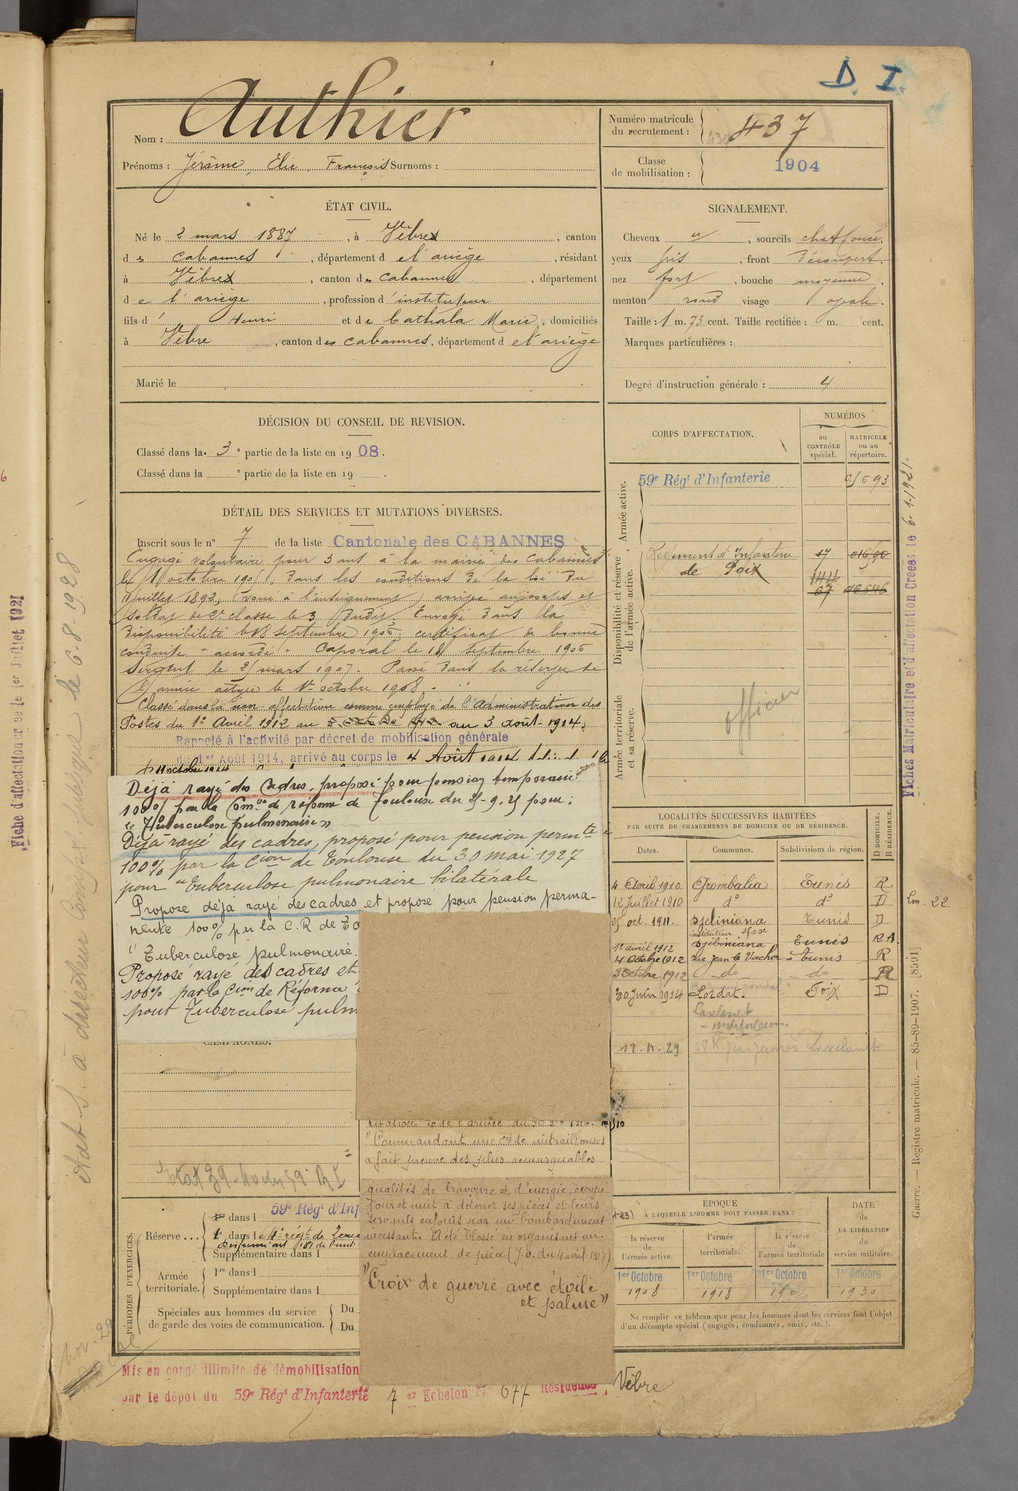 D. I.
Nom : Authier
Prénoms : Jérôme, Elie, François Surnoms :
Numéro matricule
du recrutement : 437
Classe
de mobilisation : 1904
ÉTAT CIVIL.
Né le 2 mars 1887, à Vèbre, canton
des Cabannes, département de l'ariège, résidant
à Vèbre, canton des Cabannes, département
de l'ariège, profession d'instituteur
fils d' Henri et de Cathala Marie, domiciliés
à Vèbre, canton des Cabannes, département de l'ariège
Marié le
SIGNALEMENT.
Cheveux, sourcils chat foncé.
yeux gris, front découvert.
nez fort, bouche moyenne,
menton rond visage ovale.
Taille : 1 m. 73 cent. Taille rectifiée : m. cent.
Marques particulières :
Degré d'instruction générale : 4
DÉCISION DU CONSEIL DE REVISION.
Classé dans la 3e partie de la liste en 1908.
Classé dans la e partie de la liste en 19 .
DÉTAIL DES SERVICES ET MUTATIONS DIVERSES.
Inscrit sous le n° 7 de la liste Cantonale des CABANNES
Engagé volontaire pour 3 ans à la mairie des Cabannes
le octobre, dans les conditions de la loi du
juillet 1892, (voué à l'enseignement) arrivé au corps et
soldat de 2e classe le 3 dudit, Envoyé dans la
disponibilité le 18 septembre 1906; certificat de bonne
conduite accordé. Caporal le 18 septembre 1906
Sergent le 21 mars 1907. Passé dans la réserve de
l'armée active le 1er octobre 1908.
Classé dans la non-affectation comme employé de l'Administration des
Postes du 1er Avril 1912 au 3 août 1914.
Rappelé à l'activité par décret de mobilisation générale
du 1er Août 1914, arrivé au corps le 4 Août 1914
Déjà rayé des cadres, proposé pour pension temporaire
100% par la Comon de réforme de Toulouse du 25-9-25 pour :
"Tuberculose pulmonaire"
Déjà rayé des cadres, proposé pour pension permte
100% par la Cion de Toulouse du 30 mai 1927
pour "Tuberculose pulmonaire bilatérale
Proposé déjà rayé des cadres et proposé pour pension perma-
nente 100% par la C.R de To
"Tuberculose pulmonaire.
Proposé rayé des cadres et
100% par la Cion de Réforme
pour Tuberculose pulm
CAMPAGNES.
CORPS D'AFFECTATION.
NUMÉROS
DU CONTRÔLE spécial.
MATRICULE ou au répertoire.
Armée active.
59e Régt d'Infanterie
Disponibilité et réserve de l'armée active.
Régiment d'Infanterie 17
de Foix 1411
67
Armée territoriale et sa réserve.
officier
LOCALITÉS SUCCESSIVES HABITÉES
PAR SUITE DE CHANGEMENTS DE DOMICILE OU DE RÉSIDENCE.
Dates. Communes. Subdivisions de région. D DOMICILE. R RÉSIDENCE.
4 Avril 1910 Grombalia Tunis R
12 Juillet 1910 d° d° D
25 oct. 1911. Djéliniana Tunis D
instituteur Sfax
1er avril 1912 Djébiniana Tunis R
4 Octobre 1912 rue Jean le Vacher Tunis R
Octobre 1912 do do R
30 Juin 1914 Lordat. Foix D
Lavelanet
Lavelanet
Citation
"Commandant une Cie de mitrailleuses
a fait preuve des plus remarquables
qualités de bravoure et d'énergie, occupé
jour et nuit à déterrer ses pièces et leurs
servants enfouis par un bombardement
incessant. A été blessé en organisant un
emplacement de pièce (J.O. du 4 avril 1917)
"Croix de guerre avec étoile
et palme"
PÉRIODES D'EXERCICES.
Réserve . . . 1re dans l 59e Régt d'Inf
2e dans l
Supplémentaire dans l
Armée territoriale. 1re dans l
Supplémentaire dans l
Spéciales aux hommes du service Du
de garde des voies de communication. Du
ÉPOQUE
À LAQUELLE L'HOMME DOIT PASSER DANS :
la réserve de l'armée active.
l'armée territoriale.
la réserve de l'armée territoriale
DATE de LA LIBÉRATION du service militaire.
1er Octobre 1908
1er Octobre 1918
1er Octobre
1er Octobre 1930
Ne remplir ce tableau que pour les hommes dont les services font l'objet
d'un décompte spécial (engagés, condamnés, omis, etc.).
Mis en congé illimité de démobilisation
par le dépôt du 59e Régt d'Infanterie 7 er Echelon N° 677 Résidence, Vèbre
Fiche d'affectation créée le 1er Juillet 1921
Fiches Matriculaire et d'affectation Créées le 6.1.1921.
Guerre. — Registre matricule. — 85-89-1907. [8591]